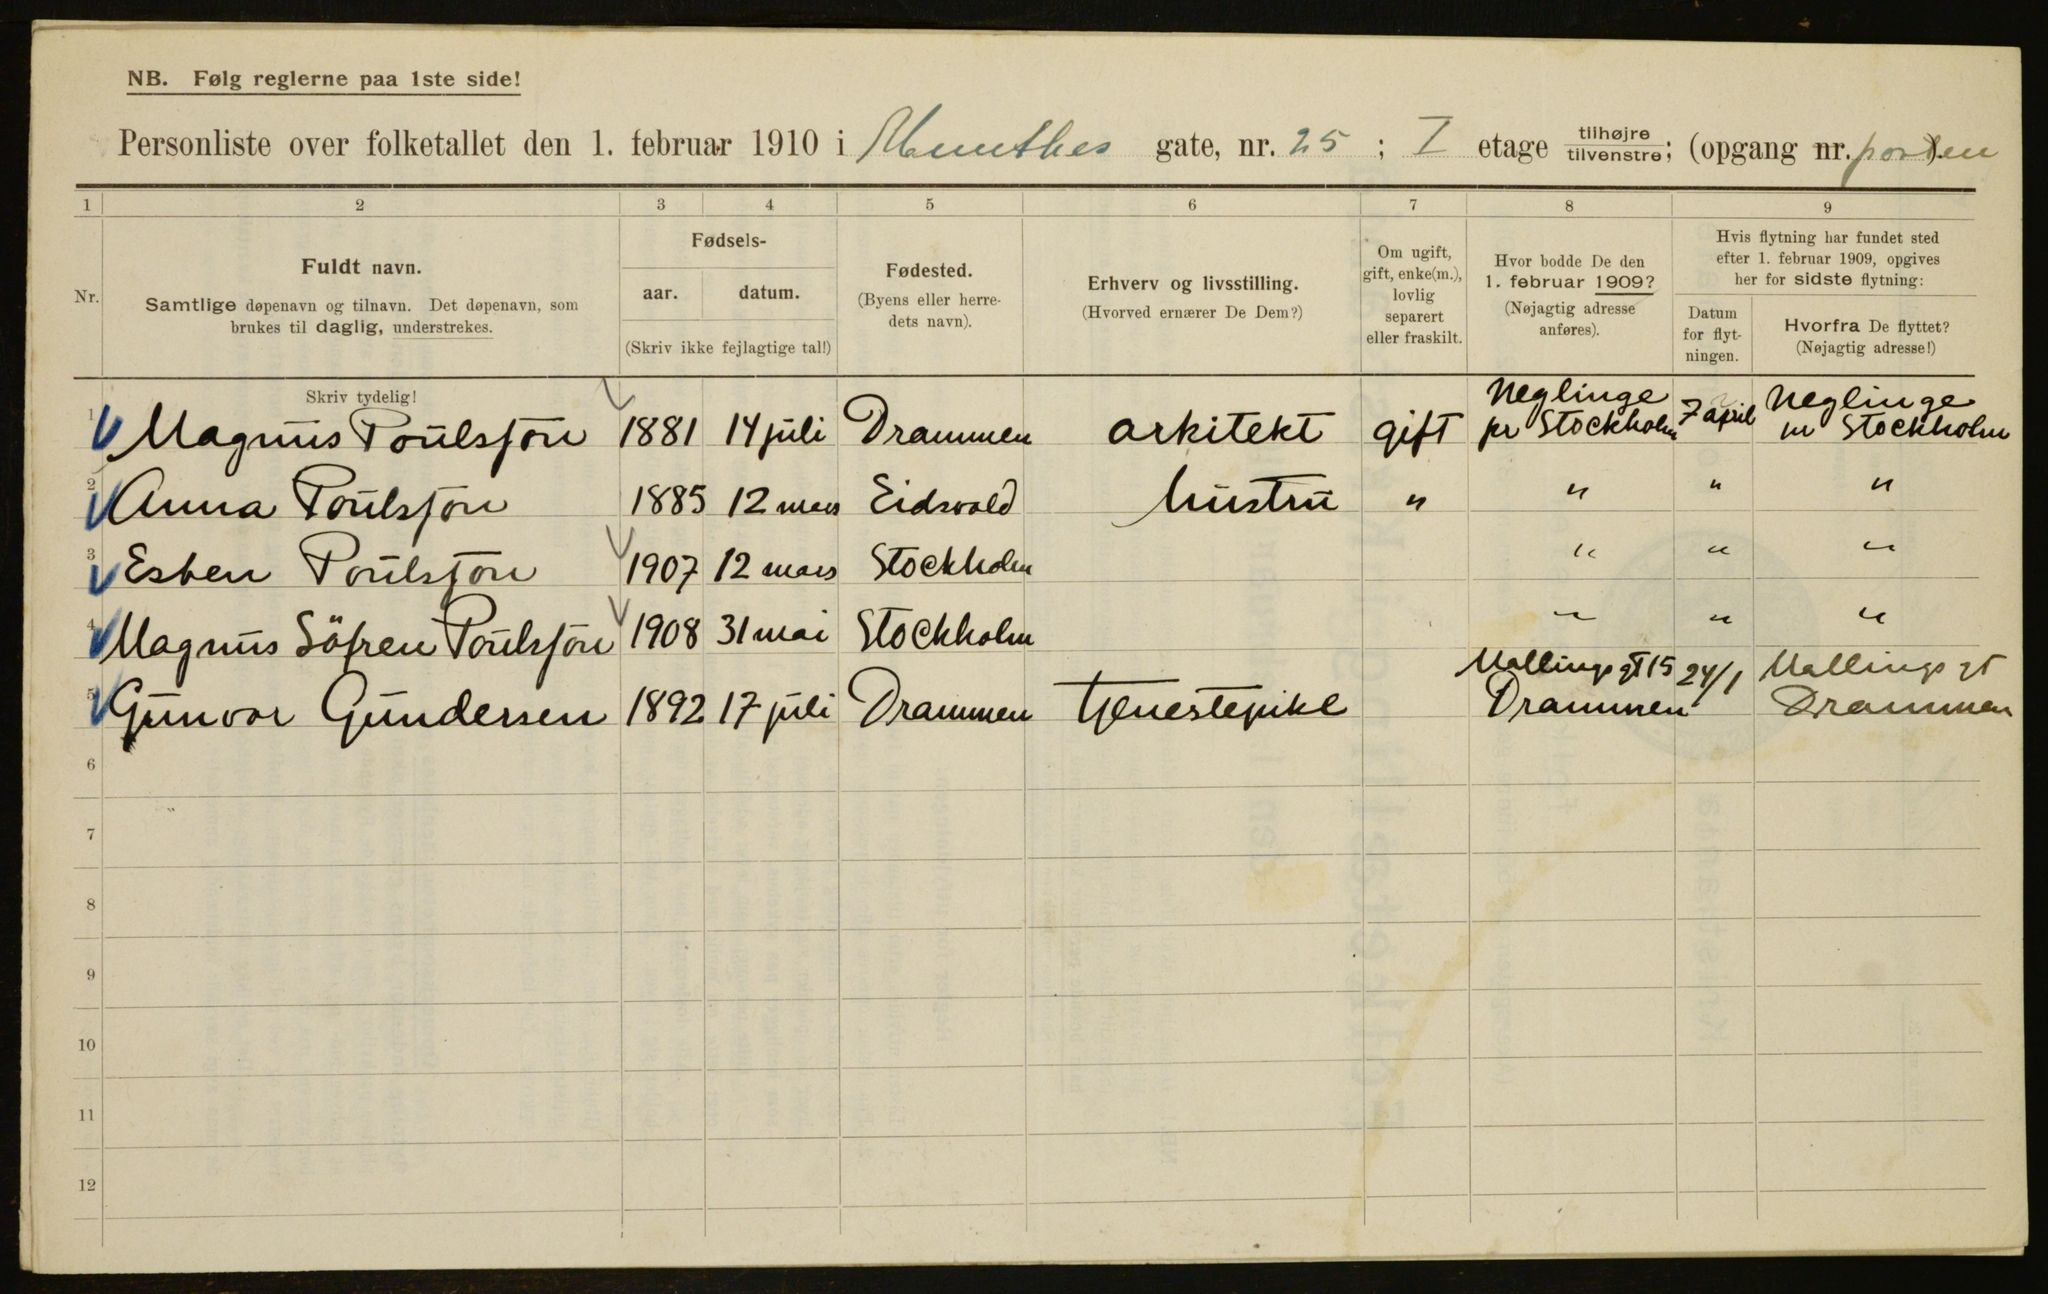 NB. Følg reglerne paa 1ste side!
Personliste over folketallet den 1. februar 1910 i Munthes gate, nr. 25 ; I etage tilhøjre/tilvenstre; (opgang nr. porten ).
1 2 3 4 5 6 7 8 9
Nr.
Fuldt navn.
Samtlige døpenavn og tilnavn. Det døpenavn, som
brukes til daglig, understrekes.
Fødsels-
aar. datum.
(Skriv ikke fejlagtige tal!)
Fødested.
(Byens eller herre-
dets navn).
Erhverv og livsstilling.
(Hvorved ernærer De Dem?)
Om ugift,
gift, enke(m.),
lovlig
separert
eller fraskilt.
Hvor bodde De den
1. februar 1909?
(Nøjagtig adresse
anføres).
Hvis flytning har fundet sted
efter 1. februar 1909, opgives
her for sidste flytning:
Datum
for flyt-
ningen.
Hvorfra De flyttet?
(Nøjagtig adresse!)
Skriv tydelig!
1 Magnus Poulsson 1881 14 juli Drammen arkitekt gift Neglinge pr Stockholm 7 april Neglinge pr Stockholm
2 Anna Poulsson 1885 12 mars Eidsvold hustru " " " "
3 Esben Poulsson 1907 12 mars Stockholm " " "
4 Magnus Söfren Poulsson 1908 31 mai Stockholm " " "
5 Gunvor Gundersen 1892 17 juli Drammen tjenestepike Mallings gt 15 Drammen 24/1 Mallings gt Drammen
6
7
8
9
10
11
12